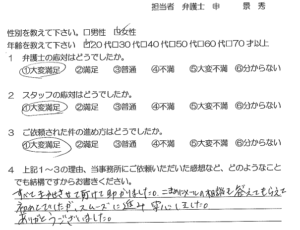 担当者 弁護士 申 景秀
性別を教えて下さい。□男性 ☑女性
年齢を教えて下さい ☑20代□30代□40代□50代□60代□70才以上
1 弁護士の応対はどうでしたか。
①大変満足 ②満足 ③普通 ④不満 ⑤大変不満 ⑥分からない
2 スタッフの応対はどうでしたか。
①大変満足 ②満足 ③普通 ④不満 ⑤大変不満 ⑥分からない
3 ご依頼された件の進め方はどうでしたか。
①大変満足 ②満足 ③普通 ④不満 ⑤大変不満 ⑥分からない
4 上記1~3の理由、当事務所にご依頼いただいた感想など、どのようなこと
でも結構ですからお書きください。
すべてお任せさせて頂けて助かりました。こまめにメールの相談も答えてもらえて
初めてでしたが、スムーズに進み
ありがとうございました。